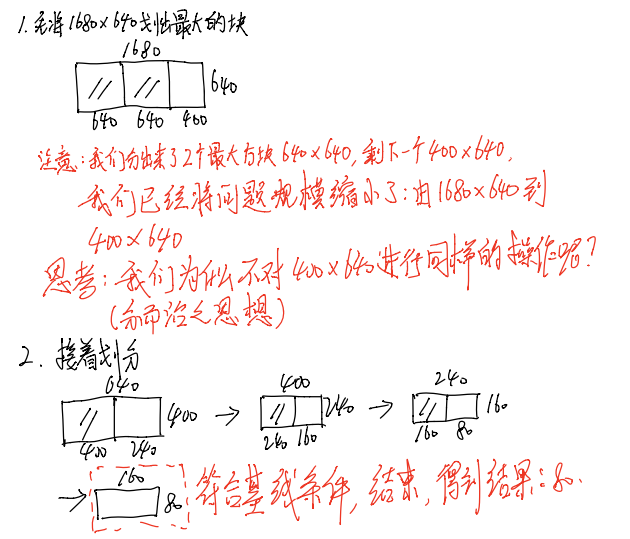 1.先将1680×640划出最大的块
1680
640
640 640 400
注意:我们分出来了2个最大方块640×640,剩下一个400×640,
我们已经将问题规模缩小了:由1680×640到
400×640
思考:我们为什么不对400×640进行同样的操作呢?
(分而治之思想)
2. 接着划分
640
400
400 240
400
240
240 160
240
160
160 80
160
80
符合基线条件,结束,得到结果:80.